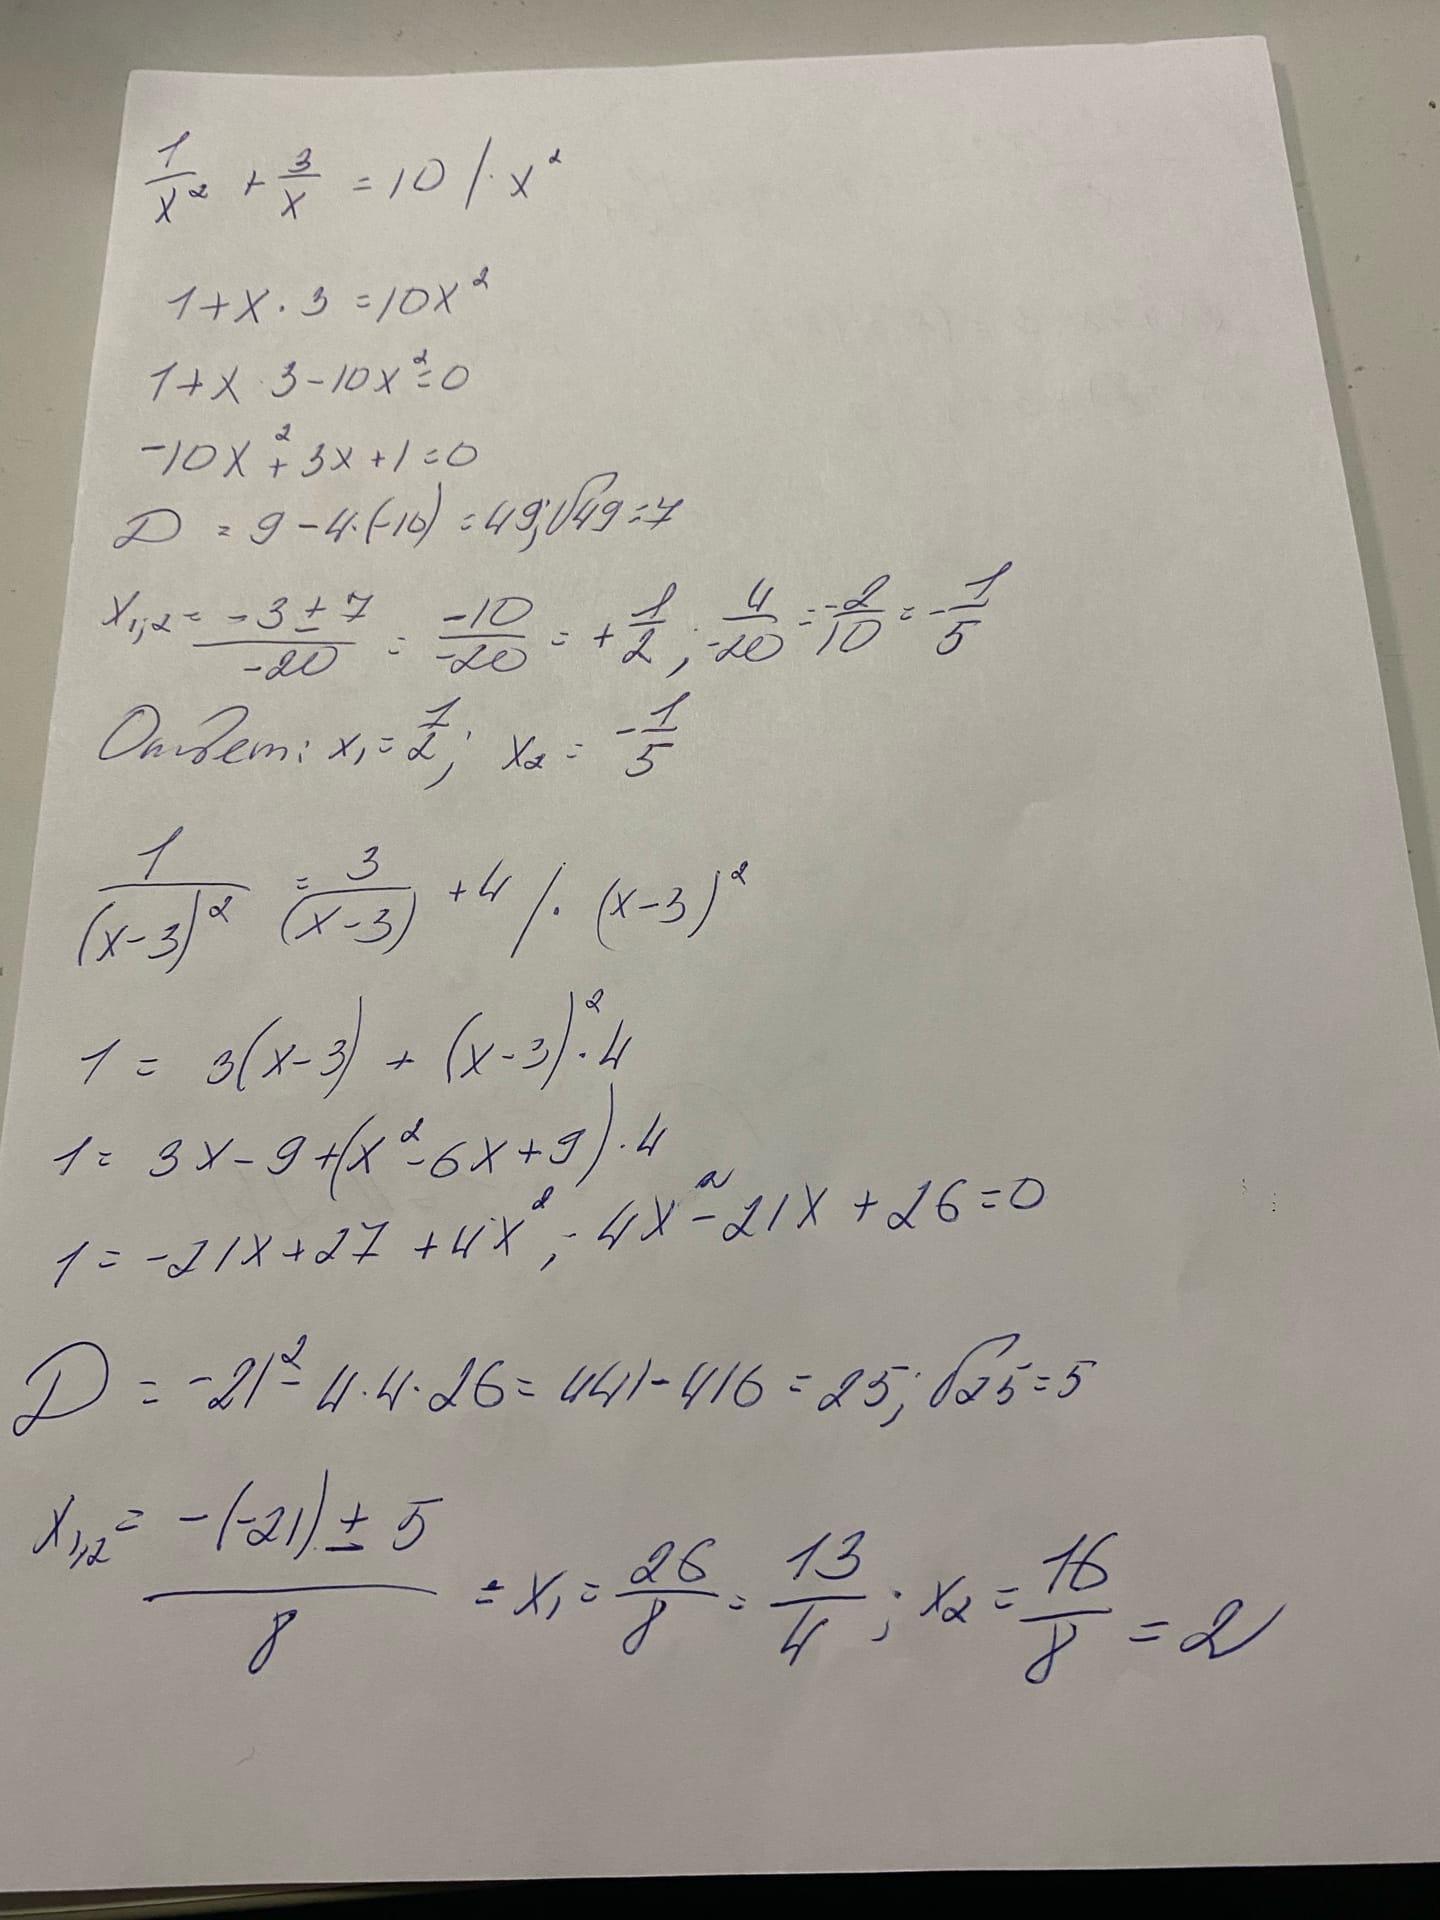 1/x² + 3/x = 10 /· x²
1 + x · 3 = 10x²
1 + x · 3 - 10x² = 0
-10x² + 3x + 1 = 0
D = 9 - 4·(-10) = 49; √49 = 7
x₁,₂ = (-3 ± 7)/-20 = -10/-20 = +1/2; 4/-20 = -2/10 = -1/5
Ответ: x₁ = 1/2; x₂ = -1/5
1/(x-3)² = 3/(x-3) + 4 /· (x-3)²
1 = 3(x-3) + (x-3)² · 4
1 = 3x - 9 + (x² - 6x + 9) · 4
1 = -21x + 27 + 4x²; - 4x² - 21x + 26 = 0
D = -21² - 4·4·26 = 441 - 416 = 25; √25 = 5
x₁,₂ = (-(-21) ± 5)/8 = x₁ = 26/8 = 13/4; x₂ = 16/8 = 2